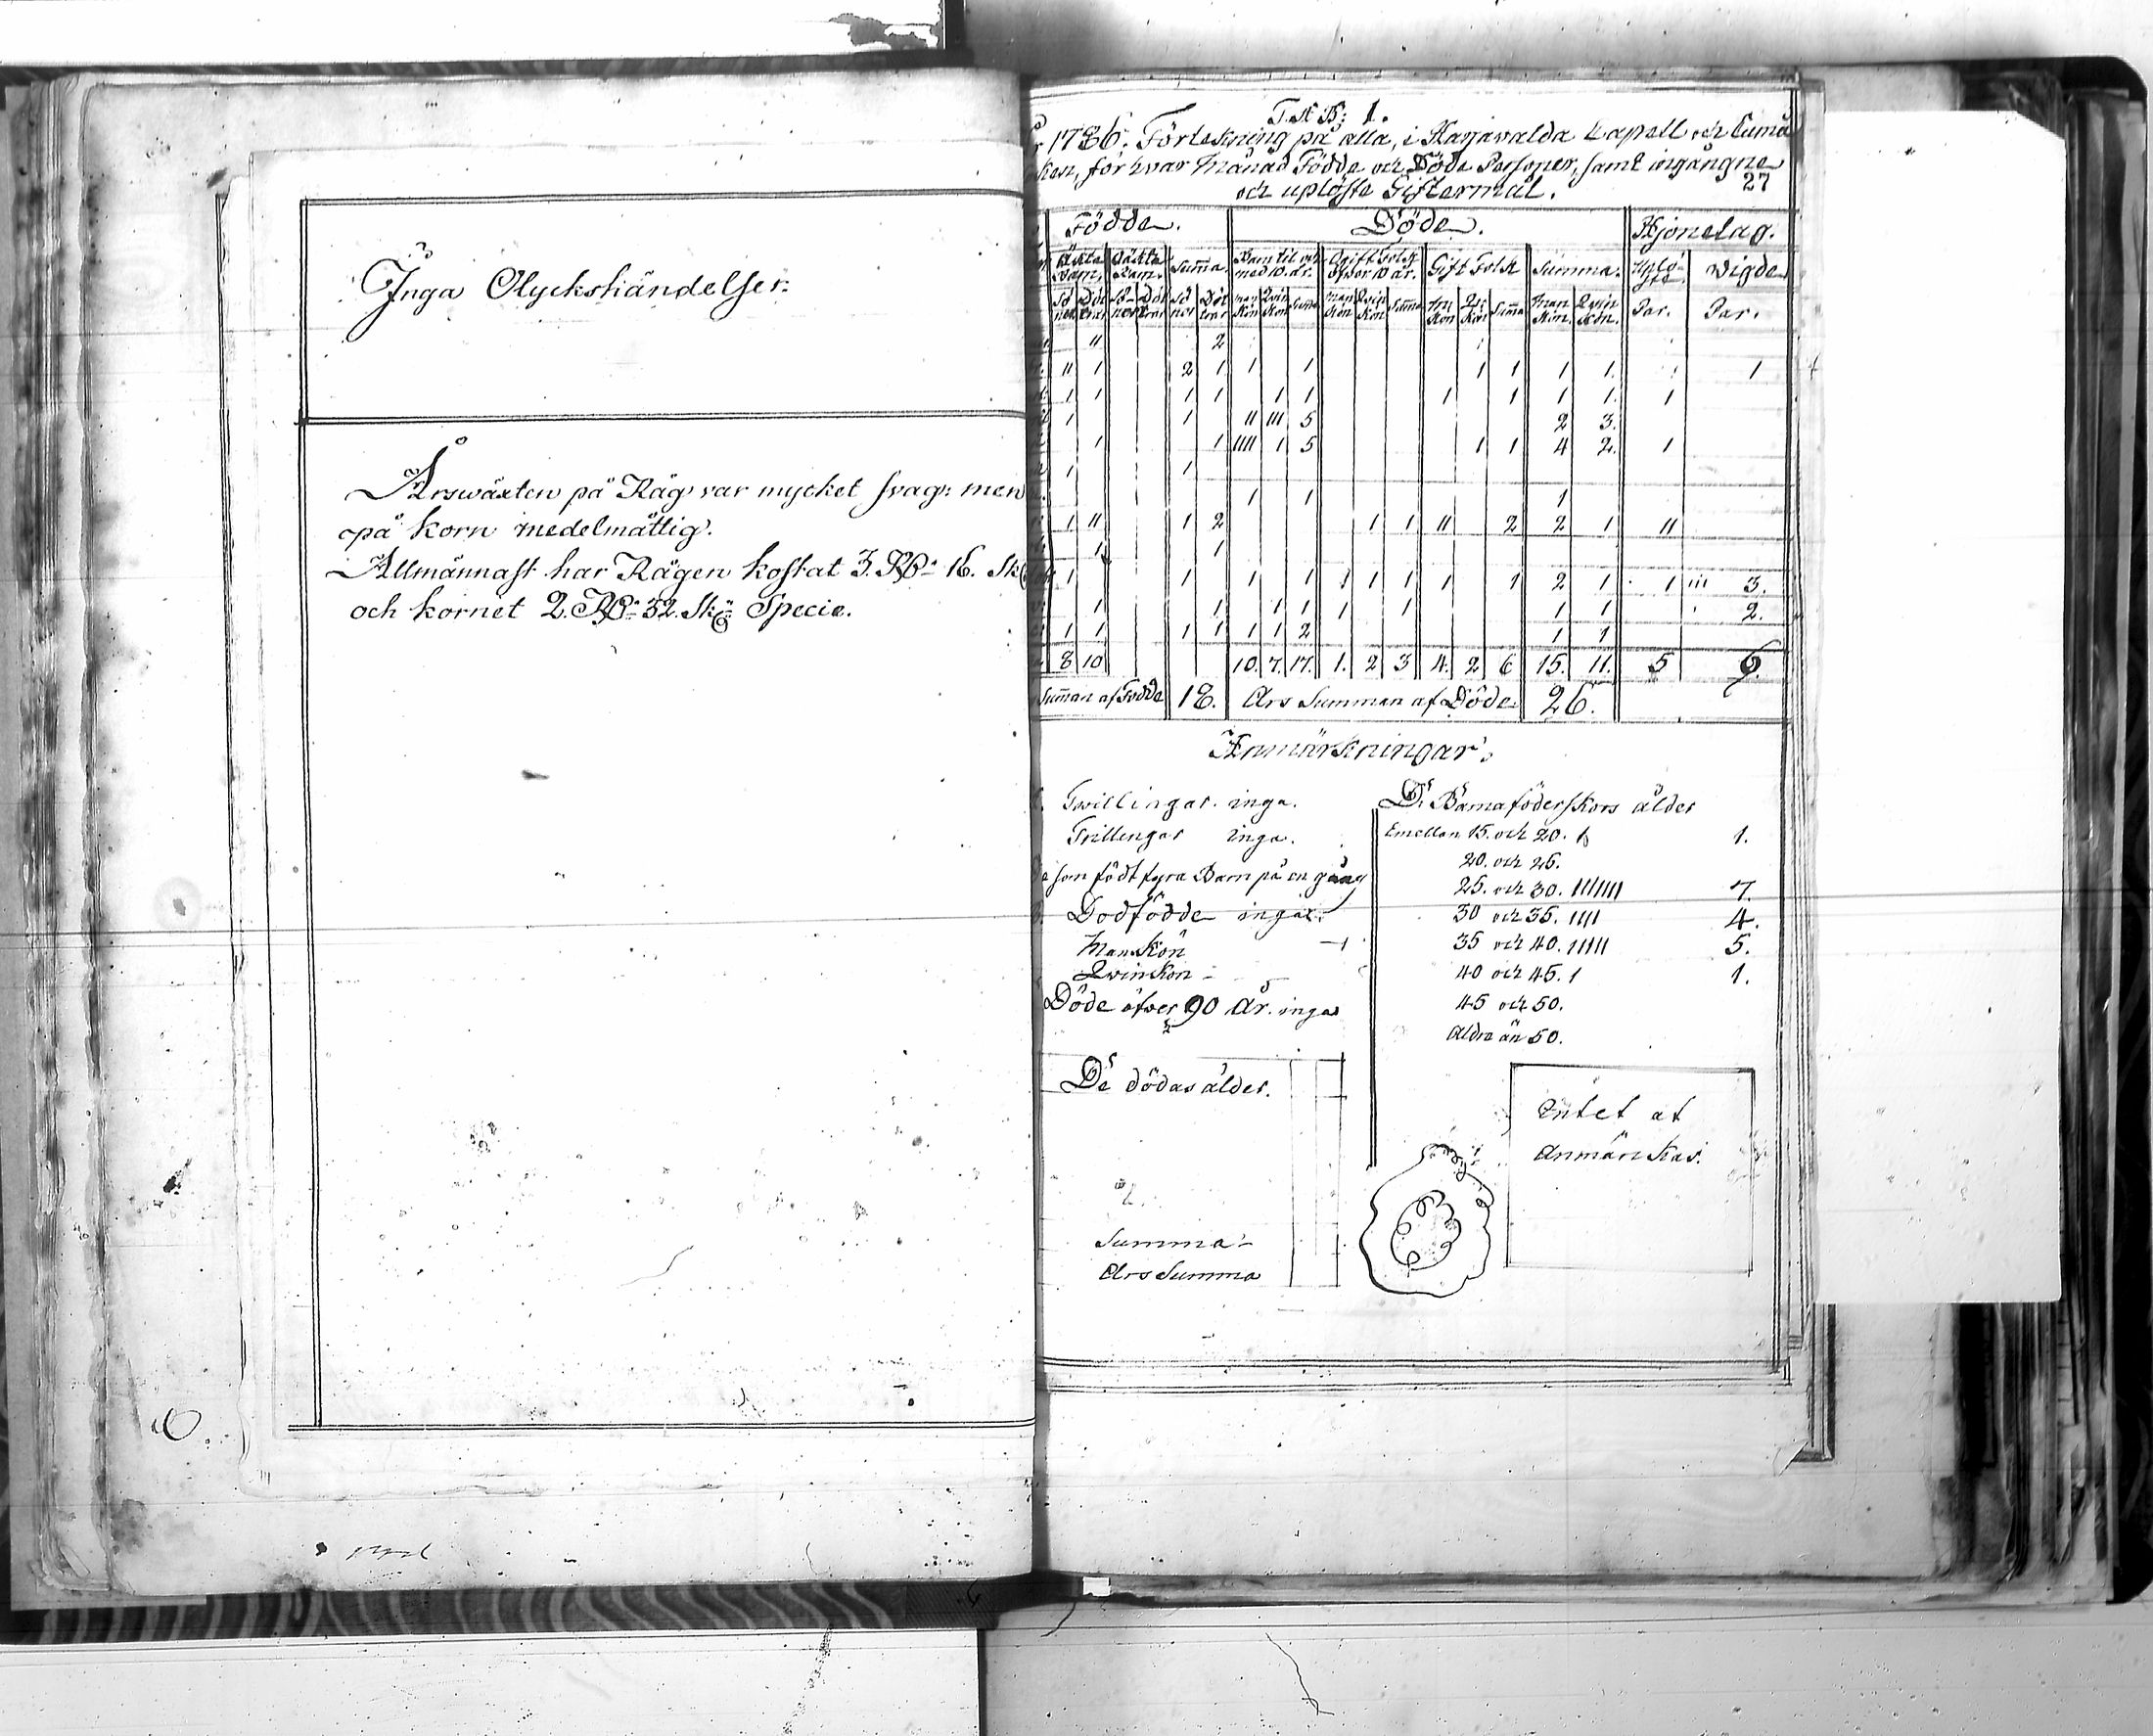 Inga Olyckshändelser:
Årswäxten på Råg var mycket svag: men
på korn medelmåttig.
Allmännast har Rågen kostat 3. Rd: 16. Sk
och kornet 2. Rd: 32. Sk: Specie.
Tab: 1.
1786. Förtekning på alla, i Karjavalda Capell och Eura
ken, för hvar Månad Födde och Döde Personer, samt ingångne
och uplöste Giftermål.
27
Födde. Döde. Hjonelag.
Äkta Barn. Oäkta Barn. Summa. Barn til och med 10. år. Ogift Folk öfver 10 år. Gift Folk Summa. Uplöste Vigde
Sö ner Döt trar Sö ner Döt trar Sö ner Döt trar Man Kön Qvin Kön Summa Man Kön Qvin Kön Summa Man Kön Qvin Kön Summa Man Kön. Qvin Kön. Par. Par.
II 2
II 1 2 1 1 1 1 1 1 1. 1
1 1 1 1 1 1 1 1 1 1. 1
1 1 II III 5 2 3.
1 1 IIII 1 5 1 1 4 2. 1
1 1
1 1 1
1 II 1 2 1 1 II 2 2 1 II
1 1
1 1 1 1 1 1 1 1 1 2 1 1 III 3.
1 1 1 1 1 1 1 1 2.
1 1 1 1 1 1 2 1 1
8 10 10. 7. 17. 1. 2 3 4. 2 6 15. 11. 5 6.
Summan af Födde 18. Års Summan af Döde 26.
Anmärkningar:
Tvillingar. inga.
Trillingar inga.
som födt fyra Barn på en gång
Dödfödde inga.
Mankön
Qvinkön
Döde öfver 90 År. inga
De dödas ålder.
Summa
Års Summa
De Barnaföderskors ålder
Emellan 15. och 20. 1 1.
20. och 25.
25. och 30. IIIIIII 7.
30 och 35. IIII 4.
35 och 40. IIIII 5.
40 och 45. 1 1.
45 och 50.
Äldra än 50.
Intet at
Anmärkas.